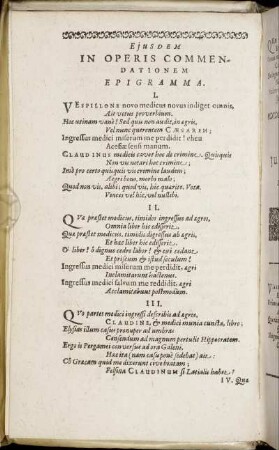 EJUSDEM
IN OPERIS COMMEN-
DATIONEM
EPIGRAMMA.
I.
VESPILLONE novo medicus novus indiget omnis,
Ait vetus proverbium.
Hoc utinam vanũ! Sed quis non audit, in agris,
Vel nunc querentem CÆSAREM;
Ingressus medici miserum me perdidit! eheu
Acessæ sensi manum.
CLAUDINUS medicis cavet hoc de crimine. Quisquis
Non vis notari hoc crimine;
Imò pro certo quisquis vis crimine laudem;
Ægri bono, morbi malo;
Quod non vis, alibi; quod vis, hîc quærito. Vota
Vinces vel hîc, vel nusibi.
II.
QUæ præstet medicus, timidos ingressus ad ægros,
Omnia liber hic edisserit.
Qua præstet medicus, timidis digressus ab ægris,
Et hæc liber hic edisserit.
O liber! ô dignus cedro liber! & cui cedant
Et prisum & istud seculum!
Ingressus medici miserum me perdidit: ægri
Inclamitarunt hactenus.
Ingressus medici salvum me reddidit: ægri
Acclamitabunt postmodum.
III.
QUa partes medici ingressi describis ad ægros,
CLAUDINE, & medici munia cuncta, libro;
Elysias illum casus pronuper ad umbras
Censendum ad magnum pertulit Hippocratem.
Ergo is Pergamei conversus ad ora Galeni,
Hac ita (nam casu ponè sedebat) ait:
Cô Græcam quod me dixerunt civibus tam;
Falsum CLAUDINUM si Latialis habet?
IV. Qua